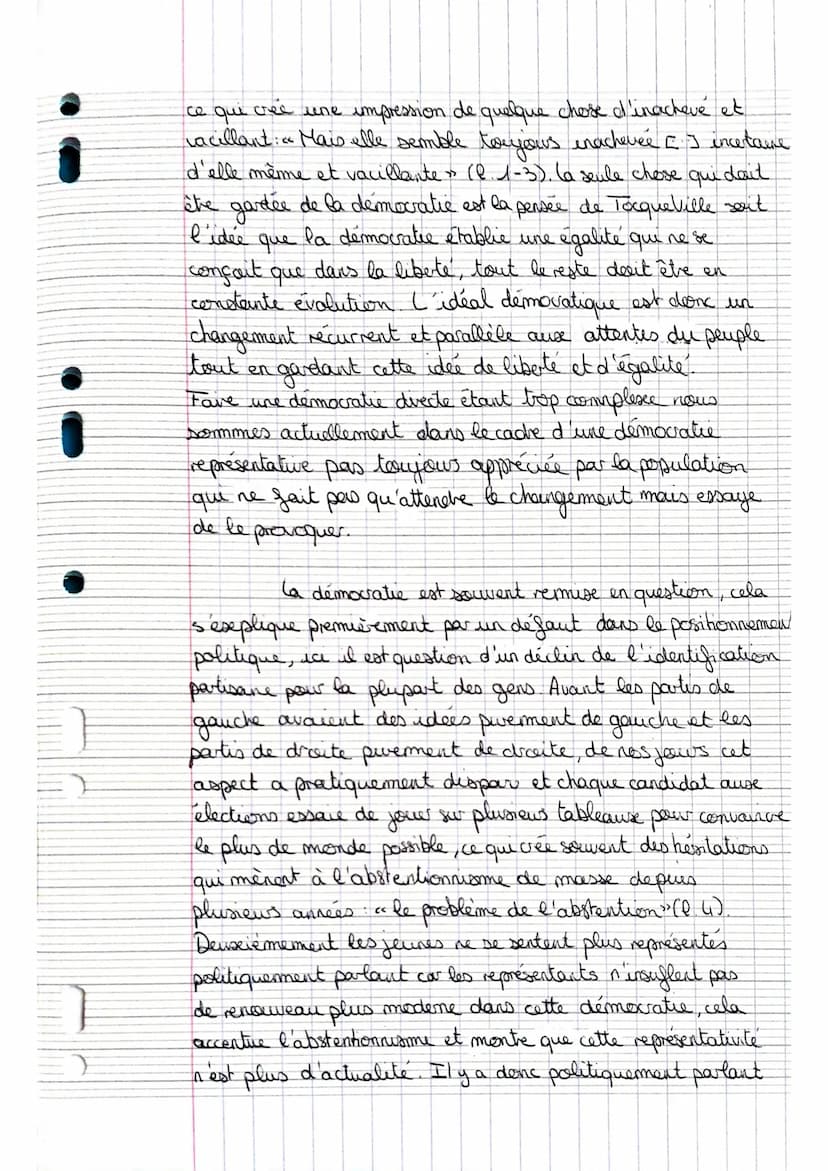 ce qui crée une impression de quelque chose d'inachevé et
vacillant : « Mais elle semble toujours inachevée [.] incertaine
d'elle même et vacillante » (l. 1-3). La seule chose qui doit
être gardée de la démocratie est la pensée de Tocqueville soit
l'idée que la démocratie établie une égalité qui ne se
conçoit que dans la liberté, tout le reste doit être en
constante évolution. L'idéal démocratique est donc un
changement récurrent et parallèle aux attentes du peuple
tout en gardant cette idée de liberté et d'égalité.
Faire une démocratie directe étant trop complexe nous
sommes actuellement dans le cadre d'une démocratie
représentative pas toujours appréciée par la population
qui ne fait pas qu'attendre le changement mais essaye
de le provoquer.
La démocratie est souvent remise en question, cela
s'explique premièrement par un défaut dans le positionnement
politique, ici il est question d'un déclin de l'identification
partisane pour la plupart des gens. Avant les partis de
gauche avaient des idées purement de gauche et les
partis de droite purement de droite, de nos jours cet
aspect a pratiquement disparu et chaque candidat aux
élections essaie de jouer sur plusieurs tableaux pour convaincre
le plus de monde possible, ce qui crée souvent des hésitations
qui mènent à l'abstentionnisme de masse depuis
plusieurs années : « le problème de l'abstention » (l. 4).
Deuxièmement les jeunes ne se sentent plus représentés
politiquement parlant car les représentants n'insuflent pas
de renouveau plus moderne dans cette démocratie, cela
accentue l'abstentionnisme et montre que cette représentativité
n'est plus d'actualité. Il y a donc politiquement parlant